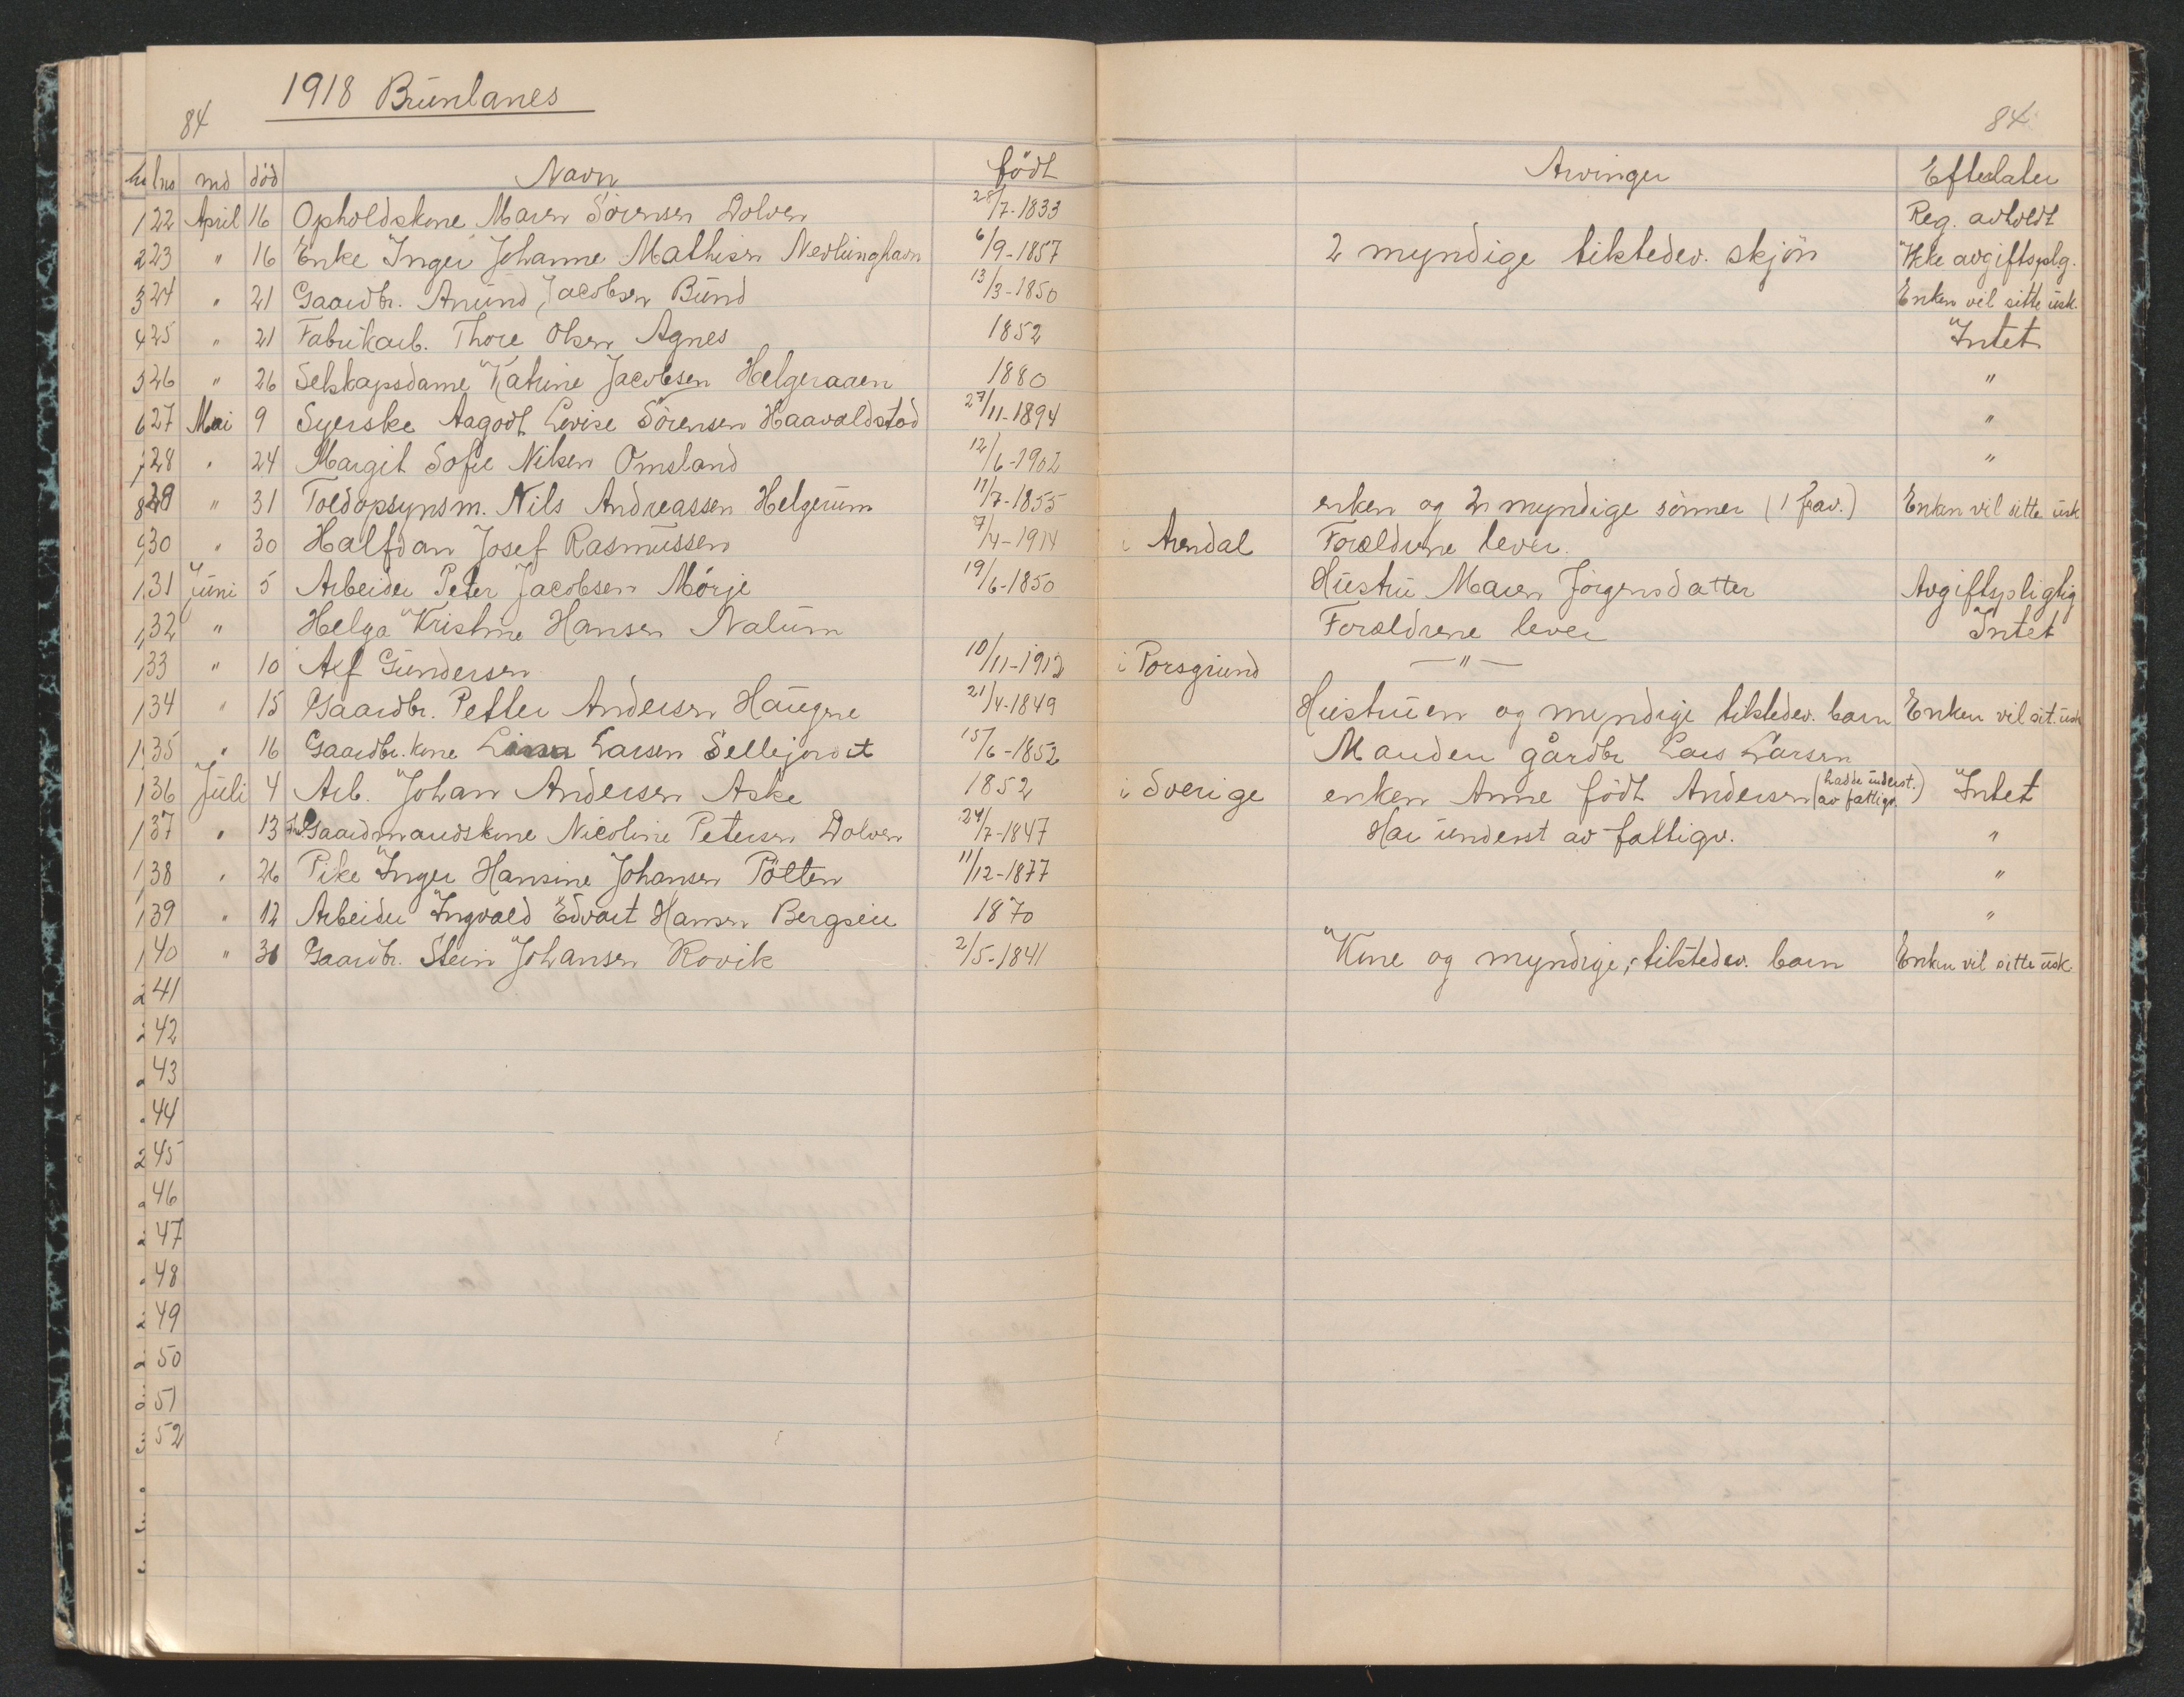 1918 Brunlanes
84
84
lno md död Navn födt Arvinger Efterlater
22 April 16 Opholdskone Maren Sörensen Dolven 28/7-1833 Reg. avholdt
23 " 16 Enke Inger Johanne Mathisen Nevlunghavn 6/9-1857 2 myndige tilstedev. skjön Ikke avgiftsplg.
24 " 21 Gaardbr. Anund Jacobsen Bund 13/3-1850 Enken vil sitte usk.
25 " 21 Fabrikarb. Thore Olsen Agnes 1852 Intet
26 " 26 Selskapsdame Katrine Jacobsen Helgeraaen 1880 "
27 Mai 9 Syerske Aagodt Lovise Sörensen Haavaldstad 27/11-1894 "
28 " 24 Margit Sofie Nilsen Omsland 12/6-1902 "
29 " 31 Toldopsynsm. Nils Andreassen Helgerum 11/7-1855 enken og 2 myndige sönner (1 frav.) Enken vil sitte usk
30 " 30 Halfdan Josef Rasmussen 7/4-1914 i Arendal Forældrene lever.
31 Juni 5 Arbeider Peter Jacobsen Mörje 19/6-1850 Hustru Maren Jörgensdatter Avgiftspligtig
32 " Helga Kristine Hansen Nalum Forældrene lever Intet
33 " 10 Alf Gundersen 10/11-1912 i Porsgrund —"—
34 " 15 Gaardbr. Petter Andersen Haugene 21/4-1849 Hustruen og myndige tilstedev. barn Enken vil sit. usk
35 " 16 Gaardbr. kone Larsen Sellejordet 15/6-1852 Manden gårdbr Lars Larsen
36 Juli 4 Arb. Johan Andersen Aske 1852 i Sverige enken Anne födt Andersen (hadde underst. av fattigv.) Intet
37 " 13 Gaardmandskone Nicoline Petersen Dolven 24/7-1847 Har underst av fattigv. "
38 " 26 Pike Inger Hansine Johansen Pölten 11/12-1877 "
39 " 12 Arbeider Ingvald Edvart Hansen Bergseie 1870 "
40 " 31 Gaardbr. Stein Johansen Rovik 2/5-1841 Kone og myndige, tilstedev. barn Enken vil sitte usk.
41
42
43
44
45
46
47
48
49
50
51
52